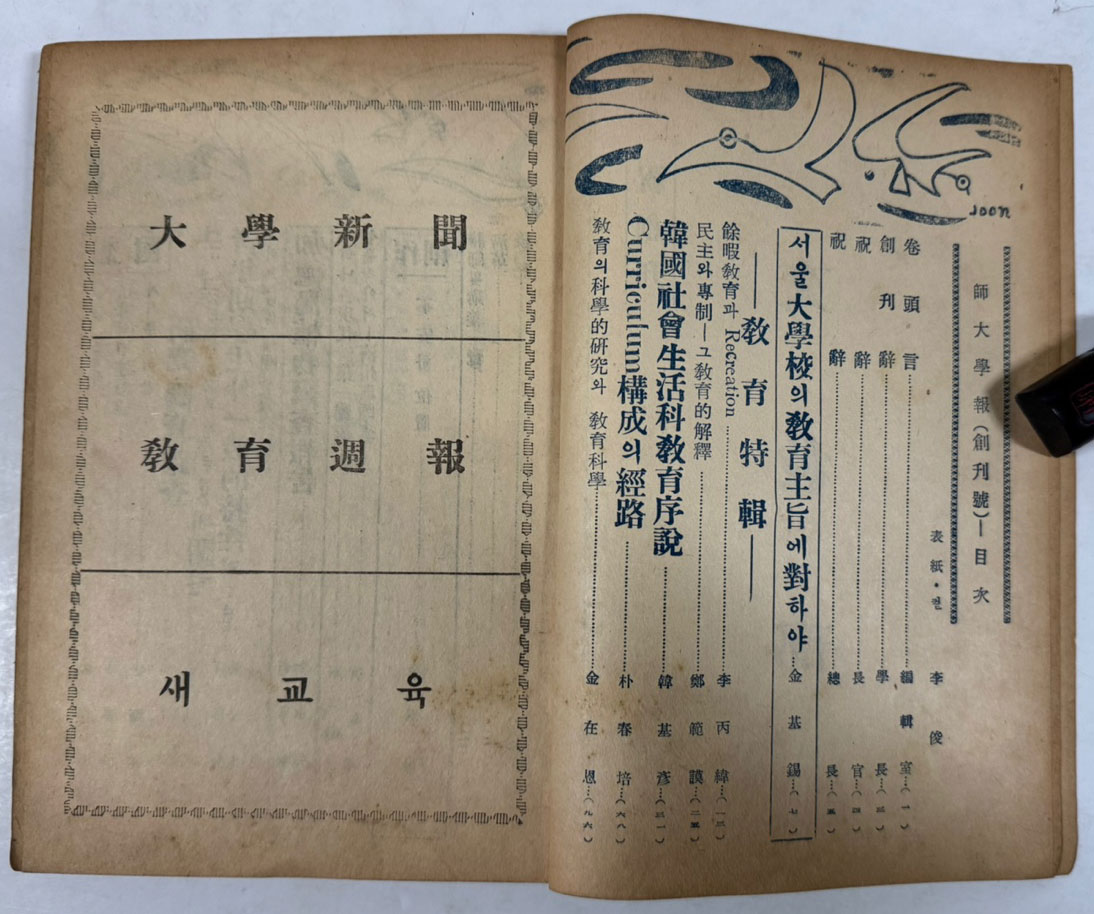 大學新聞
教育週報
새교육
Joon
師大學報(創刊號)—目次
表紙・컽 李俊
卷頭言 編輯室 (一)
創刊辭 學長 (三)
祝辭 長官 (四)
祝辭 總長 (五)
서울大學校의 教育主旨에 對하야 金基錫 (七)
—教育特輯—
餘暇教育과 Recreation 李丙緯 (一二)
民主와 專制—그 教育的解釋 鄭範謨 (二五)
韓國社會生活科教育序說 韓基彦 (三一)
Curriculum構成의 經路 朴春培 (六八)
教育의 科學的研究와 教育科學 金在恩 (九六)